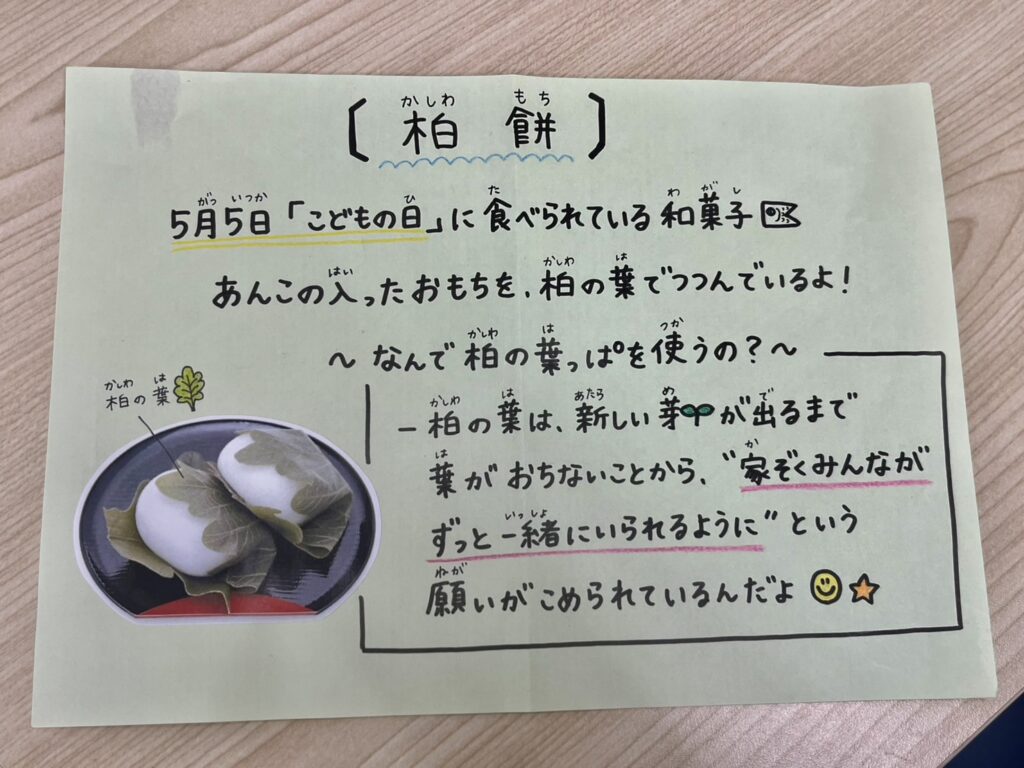 〔柏餅〕
かしわ もち
5月5日「こどもの日」に食べられている和菓子
がつ いつか ひ た わ が し
あんこの入ったおもちを、柏の葉でつつんでいるよ!
はい かしわ は
～なんで柏の葉っぱを使うの?～
かしわ は つか
柏の葉
かしわ は
－柏の葉は、新しい芽が出るまで
かしわ は あたら め で
葉がおちないことから、"家ぞくみんなが
は か
ずっと一緒にいられるように"という
いっしょ
願いがこめられているんだよ
ねが